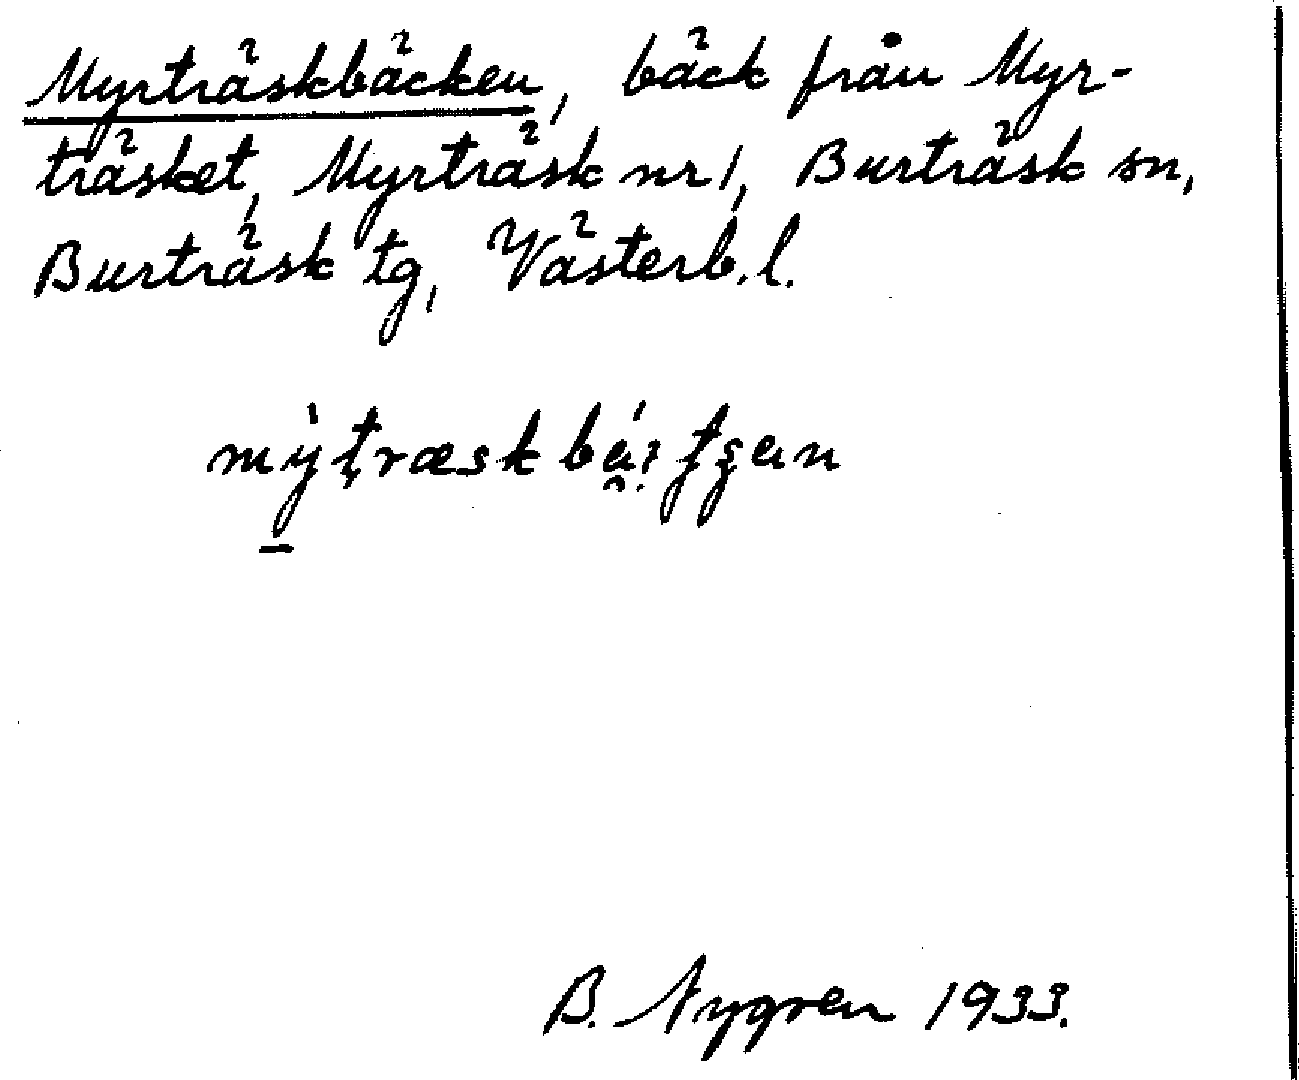 Myrträskbäcken, bäck från Myr-
träsket, Myrträsk nr 1, Burträsk sn,
Burträsk tg, Västerb.l.
B. Nygren 1933.